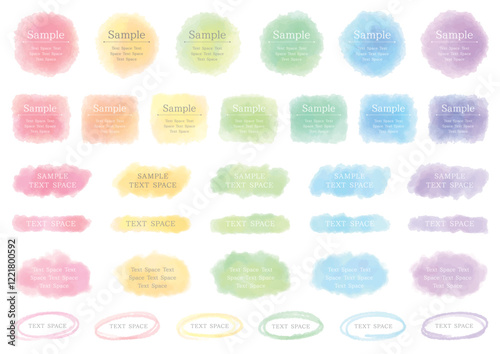 Sample
Text Space Text
Text Space Text
Text Space
Sample
Text Space Text
Text Space Text
Text Space
Sample
Text Space Text
Text Space Text
Text Space
Sample
Text Space Text
Text Space Text
Text Space
Sample
Text Space Text
Text Space Text
Text Space
Sample
Text Space Text
Text Space Text
Text Space
Sample
Text Space Text
Text Space Text
Text Space
Sample
Text Space Text
Text Space Text
Text Space
Sample
Text Space Text
Text Space Text
Text Space
Sample
Text Space Text
Text Space Text
Text Space
Sample
Text Space Text
Text Space Text
Text Space
Sample
Text Space Text
Text Space Text
Text Space
Sample
Text Space Text
Text Space Text
Text Space
SAMPLE
TEXT SPACE
SAMPLE
TEXT SPACE
SAMPLE
TEXT SPACE
SAMPLE
TEXT SPACE
SAMPLE
TEXT SPACE
TEXT SPACE
TEXT SPACE
TEXT SPACE
TEXT SPACE
TEXT SPACE
Text Space Text
Text Space Text
Text Space
Text Space Text
Text Space Text
Text Space
Text Space Text
Text Space Text
Text Space
Text Space Text
Text Space Text
Text Space
Text Space Text
Text Space Text
Text Space
TEXT SPACE
TEXT SPACE
TEXT SPACE
TEXT SPACE
TEXT SPACE
TEXT SPACE
Adobe Stock | #1221800592